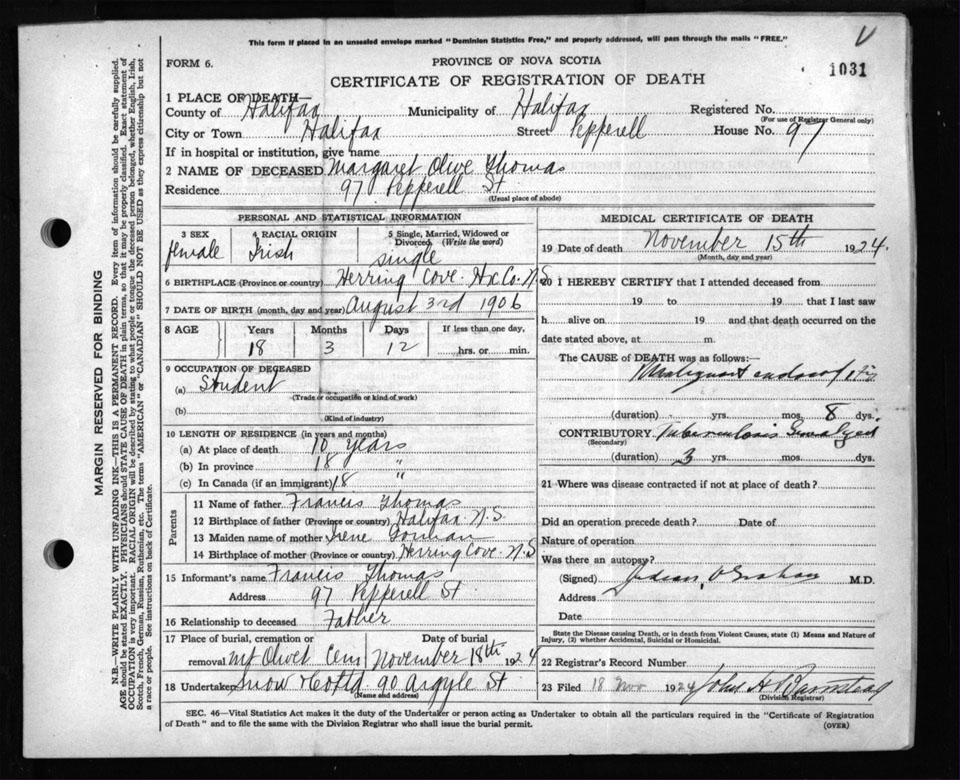 This form if placed in an unsealed envelope marked "Dominion Statistics Free," and properly addressed, will pass through the mails "FREE."
V
FORM 6.
PROVINCE OF NOVA SCOTIA
1031
CERTIFICATE OF REGISTRATION OF DEATH
1 PLACE OF DEATH—
County of Halifax Municipality of Halifax Registered No.
(For use of Registrar General only)
City or Town Halifax Street Pepperell House No. 97
If in hospital or institution, give name
2 NAME OF DECEASED Margaret Olive Thomas
Residence 97 Pepperell St
(Usual place of abode)
PERSONAL AND STATISTICAL INFORMATION
3 SEX 4 RACIAL ORIGIN 5 Single, Married, Widowed or Divorced (Write the word)
female Irish single
6 BIRTHPLACE (Province or country) Herring Cove Hx Co. N.S
7 DATE OF BIRTH (month, day and year) August 3rd 1906
8 AGE Years Months Days If less than one day,
18 3 12 hrs. or min.
9 OCCUPATION OF DECEASED
(a) Student
(Trade or occupation or kind of work)
(b)
(Kind of industry)
10 LENGTH OF RESIDENCE (in years and months)
(a) At place of death 10 years
(b) In province 18 "
(c) In Canada (if an immigrant) 18 "
Parents
11 Name of father Francis Thomas
12 Birthplace of father (Province or country) Halifax N.S.
13 Maiden name of mother Irene
14 Birthplace of mother (Province or country) Herring Cove N.S
15 Informant's name Francis Thomas
Address 97 Pepperell St
16 Relationship to deceased Father
17 Place of burial, cremation or Date of burial
removal Mt Olivet Cem November 18th 1924
18 Undertaker Snow & Co Ltd 90 Argyle St
(Name and address)
MEDICAL CERTIFICATE OF DEATH
19 Date of death November 15th 1924.
(Month, day and year)
20 I HEREBY CERTIFY that I attended deceased from
19 to 19 that I last saw
h alive on 19 and that death occurred on the
date stated above, at m.
The CAUSE OF DEATH was as follows:
Malignant endocarditis
(duration) yrs. mos. 8 dys.
CONTRIBUTORY Tuberculosis
(Secondary)
(duration) 3 yrs. mos. dys.
21 Where was disease contracted if not at place of death?
Did an operation precede death? Date of
Nature of operation
Was there an autopsy?
(Signed) M.D.
Address
Date
State the Disease causing Death, or in death from Violent Causes, state (1) Means and Nature of Injury, (2) whether Accidental, Suicidal or Homicidal.
22 Registrar's Record Number
23 Filed 18 Nov 1924 John H Barnstead
(Division Registrar)
SEC. 46—Vital Statistics Act makes it the duty of the Undertaker or person acting as Undertaker to obtain all the particulars required in the "Certificate of Registration
of Death" and to file the same with the Division Registrar who shall issue the burial permit.
(OVER)
MARGIN RESERVED FOR BINDING
N.B.—WRITE PLAINLY WITH UNFADING INK—THIS IS A PERMANENT RECORD. Every item of information should be carefully supplied.
AGE should be stated EXACTLY. PHYSICIANS should STATE CAUSE OF DEATH in plain terms, so that it may be properly classified. Exact statement of
OCCUPATION is very important. RACIAL ORIGIN will be described by stating to what people or tongue the deceased person belonged, whether English, Irish,
Scotch, French, German, Russian, Ruthenian, etc. The terms "AMERICAN" or "CANADIAN" SHOULD NOT BE USED as they express citizenship but not
a race or people. See instructions on back of Certificate.